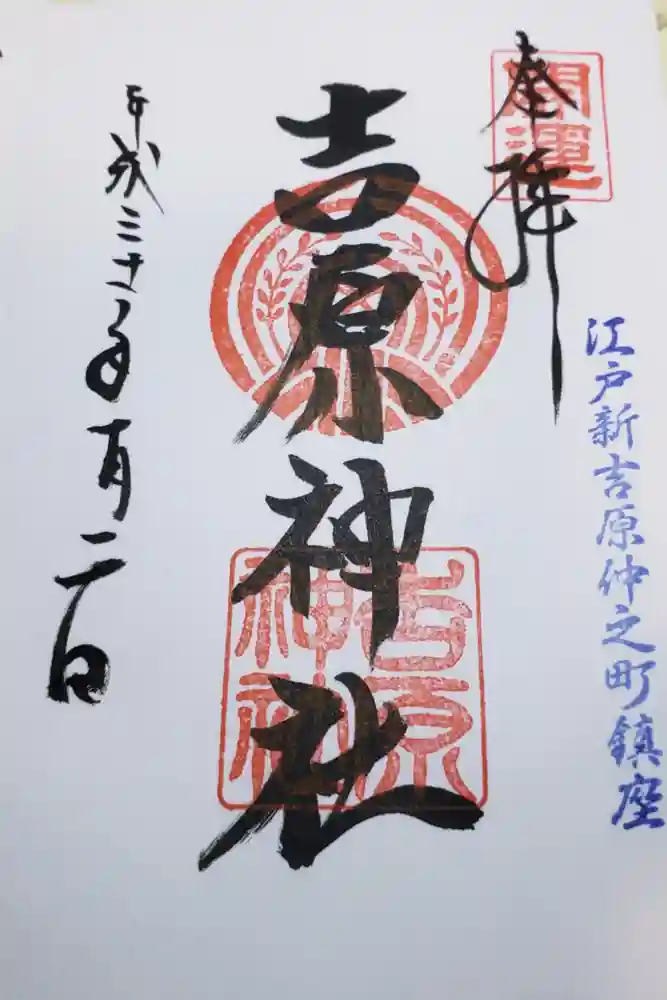 江戸新吉原仲之町鎮座
奉拝
開運
吉原神社
吉原
神社
平成三十一年一月二日